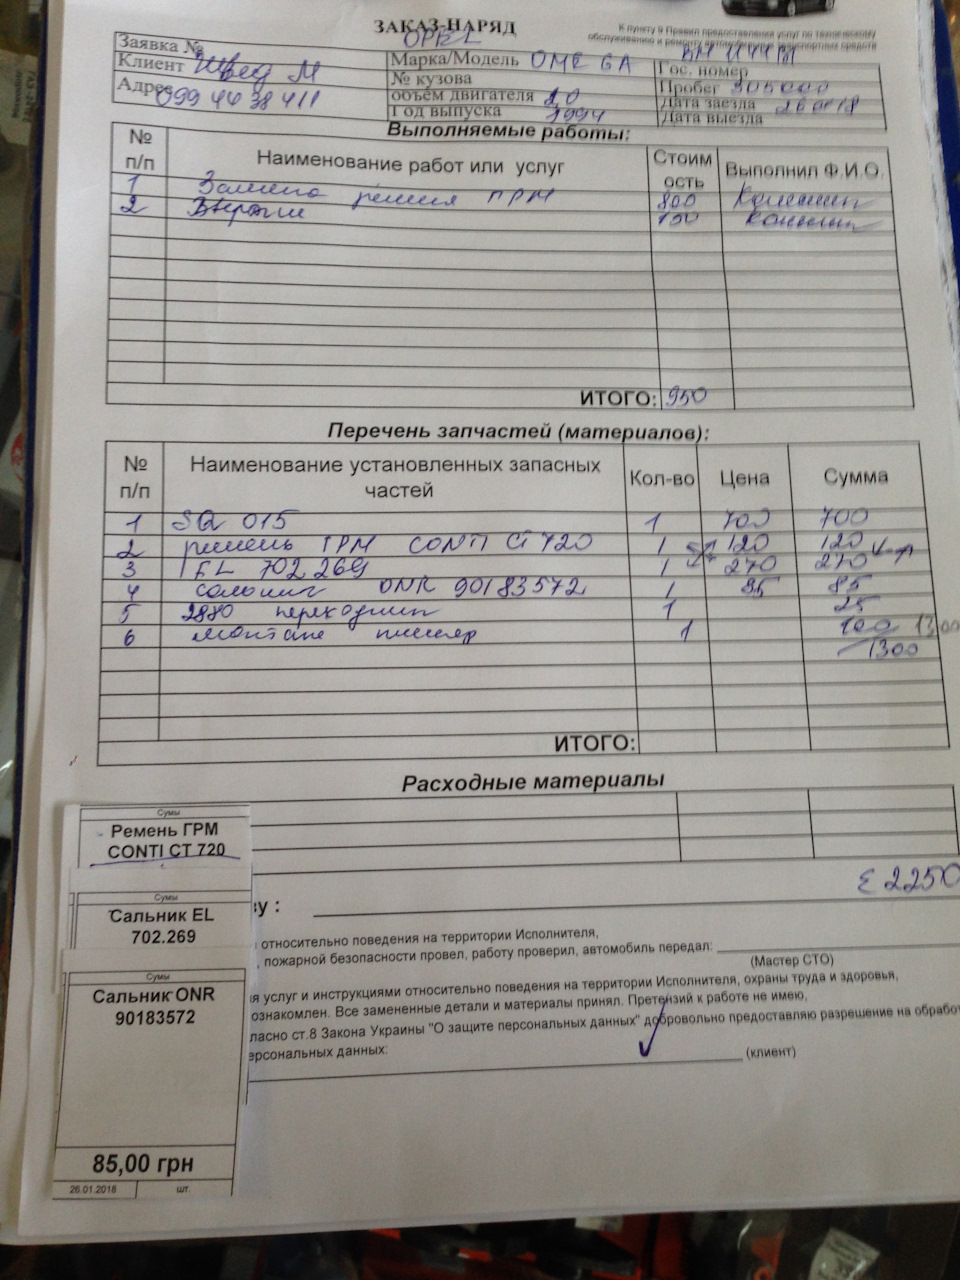 ЗАКАЗ-НАРЯД
К пункту 9 Правил предоставления услуг по техническому
обслуживанию и ремонту автомобильных транспортных средств
Заявка №
OPEL
Клиент Швед М
Марка/Модель OMEGA
Гос. номер
Адрес 099 44 38 411
№ кузова
Пробег 305000
объём двигателя 2,0
Дата заезда
Год выпуска 1994
Дата выезда
Выполняемые работы:
№ п/п Наименование работ или услуг Стоим ость Выполнил Ф.И.О.
1 Замена ремня ГРМ 800
2 150
ИТОГО: 950
Перечень запчастей (материалов):
№ п/п Наименование установленных запасных частей Кол-во Цена Сумма
1 SQ 015 1 700 700
2 ремень ГРМ CONTI CT 720 1 120 120
3 EL 702 269 1 270 270
4 сальник ONR 90183572 1 85 85
5 2880 переходник 1 25
6 монтаж 1 100 1300
1300
ИТОГО:
Расходные материалы
Сумы
Ремень ГРМ
CONTI CT 720
Σ 2250
Сумы
Сальник EL
702.269
ву :
относительно поведения на территории Исполнителя,
, пожарной безопасности провел, работу проверил, автомобиль передал:
(Мастер СТО)
Сумы
Сальник ONR
90183572
я услуг и инструкциями относительно поведения на территории Исполнителя, охраны труда и здоровья,
ознакомлен. Все замененные детали и материалы принял. Претензий к работе не имею,
ласно ст.8 Закона Украины "О защите персональных данных" добровольно предоставляю разрешение на обработ
ерсональных данных:
(клиент)
85,00 грн
26.01.2018 шт.